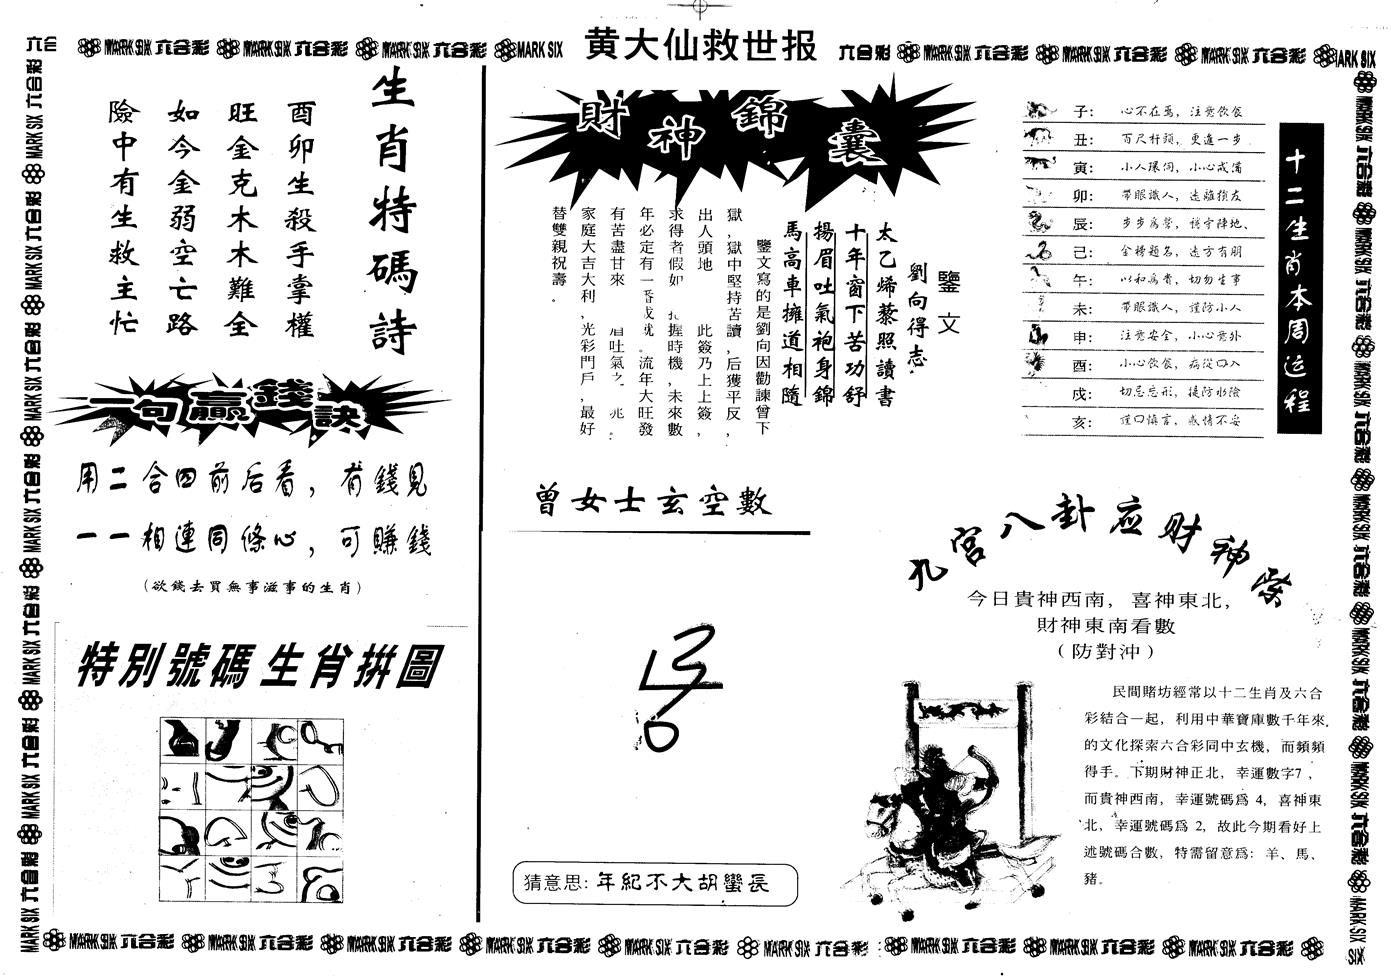 黄大仙救世报
六合彩 MARK SIX
生肖特碼詩
酉卯生殺手掌權
旺金克木木難全
如今金弱空亡路
險中有生救主忙
一句贏錢訣
用二合四前后看，有錢見
一一相連同條心，可賺錢
(欲錢去買無事滋事的生肖)
特別號碼生肖拼圖
財神錦囊
鑒文
劉向得志
太乙烯藜照讀書
十年窗下苦功舒
揚眉吐氣袍身錦
馬高車擁道相隨
鑒文寫的是劉向因勸諫曾下
獄，獄中堅持苦讀，后獲平反，
出人頭地 此簽乃上上簽，
求得者假如 握時機，未來數
年必定有一番成就。流年大旺發
有苦盡甘來 眉吐氣之 兆。
家庭大吉大利，光彩門戶，最好
替雙親祝壽。
曾女士玄空數
猜意思: 年紀不大胡蠻長
十二生肖本周运程
子: 心不在焉，注意飲食
丑: 百尺杆頭，更進一步
寅: 小人環伺，小心戒備
卯: 帶眼識人，遠離損友
辰: 步步爲營，穩守陣地、
己: 金榜題名，遠方有朋
午: 以和爲貴，切勿生事
未: 帶眼識人，謹防小人
申: 注意安全，小心意外
酉: 小心飲食，病從口入
戍: 切忌忘形，提防水險
亥: 謹口慎言，感情不妥
九宮八卦应财神
今日貴神西南，喜神東北，
財神東南看數
（防對沖）
民間賭坊經常以十二生肖及六合
彩結合一起，利用中華寶庫數千年來
的文化探索六合彩同中玄機，而頻頻
得手。下期財神正北，幸運數字7，
而貴神西南，幸運號碼爲 4，喜神東
北，幸運號碼爲 2，故此今期看好上
述號碼合數，特需留意爲: 羊、馬、
豬。